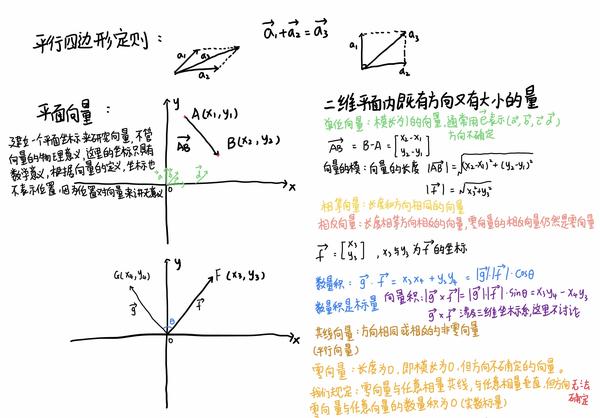 平行四边形定则：
a₁+a₂=a₃
a₁
a₃
a₂
a₁
a₃
a₂
平面向量：
建立一个平面坐标来研究向量，不管
向量的物理意义，这里的坐标只具有
数学意义，根据向量的定义，坐标也
不表示位置，因为位置对向量来讲无意义
y
A(x₁,y₁)
AB
B(x₂,y₂)
0
x
y
G(x₄,y₄)
F(x₃,y₃)
g
f
θ
0
x
二维平面内既有方向又有大小的量
单位向量：模长为1的向量，通常用e表示
方向不确定
AB = B-A = [x₂-x₁
y₂-y₁]
向量的模：向量的长度 |AB|=√(x₂-x₁)²+(y₂-y₁)²
|f|=√x₃²+y₃²
相等向量：长度和方向相同的向量
相反向量：长度相等方向相反的向量，零向量的相反向量仍然是零向量
f=[x₃
y₃]，x₃与y₃为f的坐标
数量积：g·f=x₃x₄+y₃y₄=|g||f|·cosθ
数量积是标量
向量积：|g×f|=|g||f|·sinθ=x₃y₄-x₄y₃
g×f涉及三维坐标系，这里不讨论
共线向量：方向相同或相反的非零向量
(平行向量)
零向量：长度为0，即模长为0，但方向不确定的向量。
我们规定：零向量与任意相量共线，与任意相量垂直，但方向无法
确定
零向量与任意向量的数量积为0(实数标量)